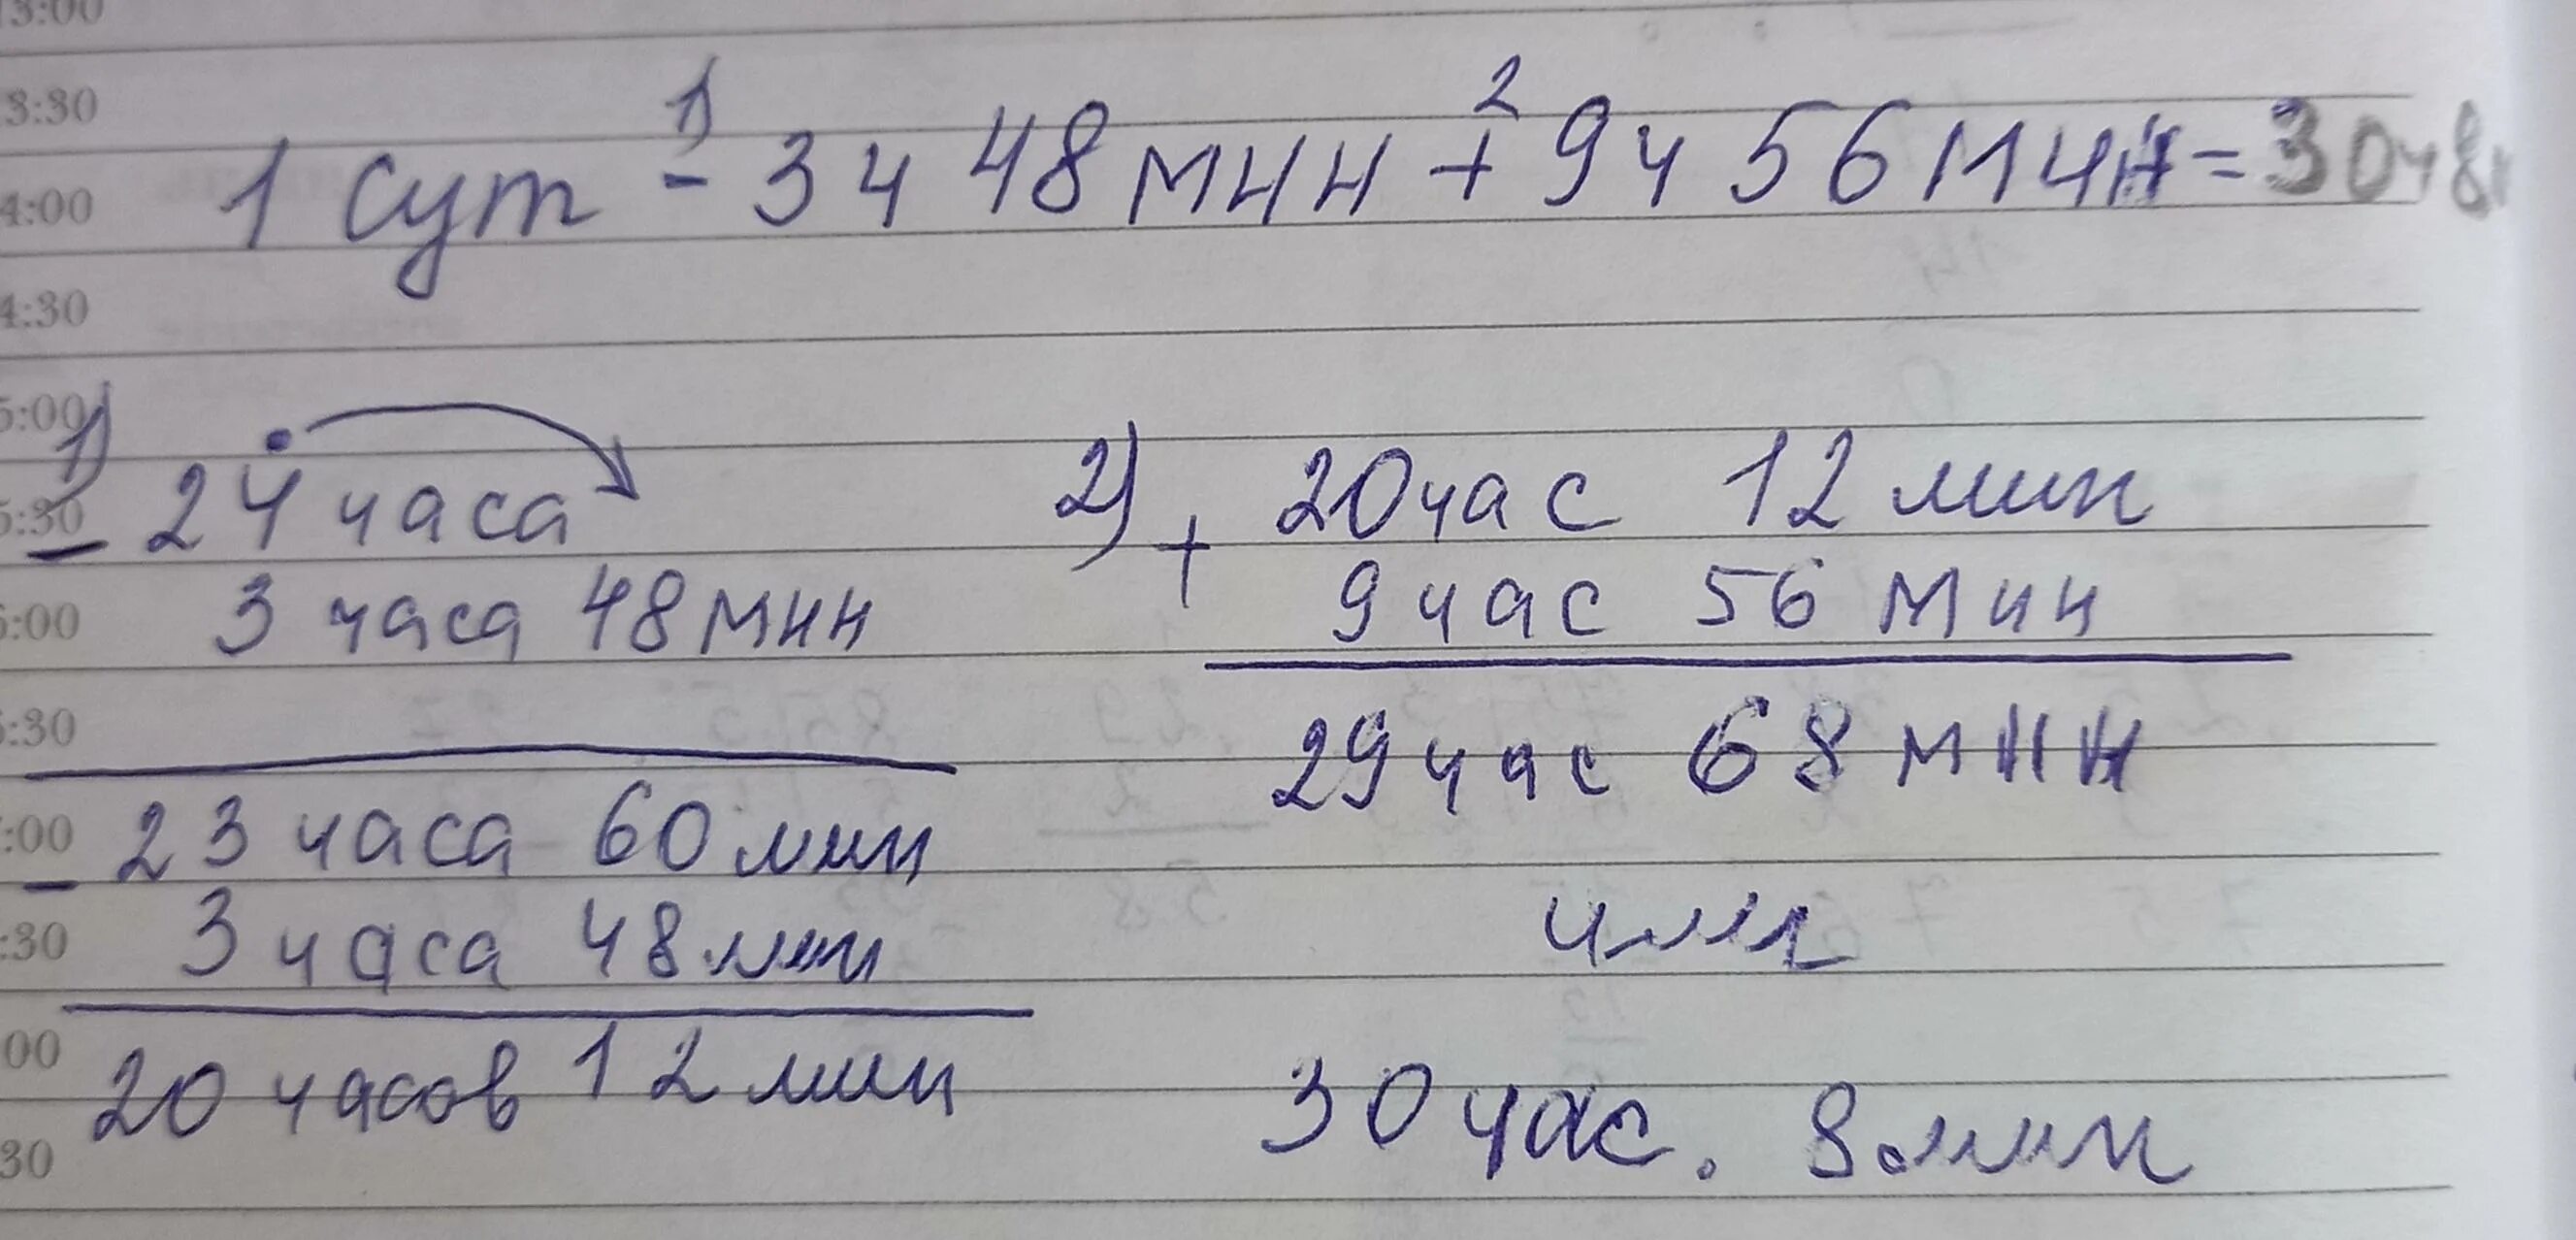 13:00
13:30
1 сут - 3 ч 48 мин + 9 ч 56 мин = 30 ч 8
1)
2
14:00
4:30
5:00
1)
5:30
- 24 часа
3 часа 48 мин
6:00
6:30
- 23 часа 60 мин
:00
3 часа 48 мин
:30
20 часов 12 мин
00
30
2) + 20 час 12 мин
9 час 56 мин
29 час 68 мин
или
30 час. 8 мин